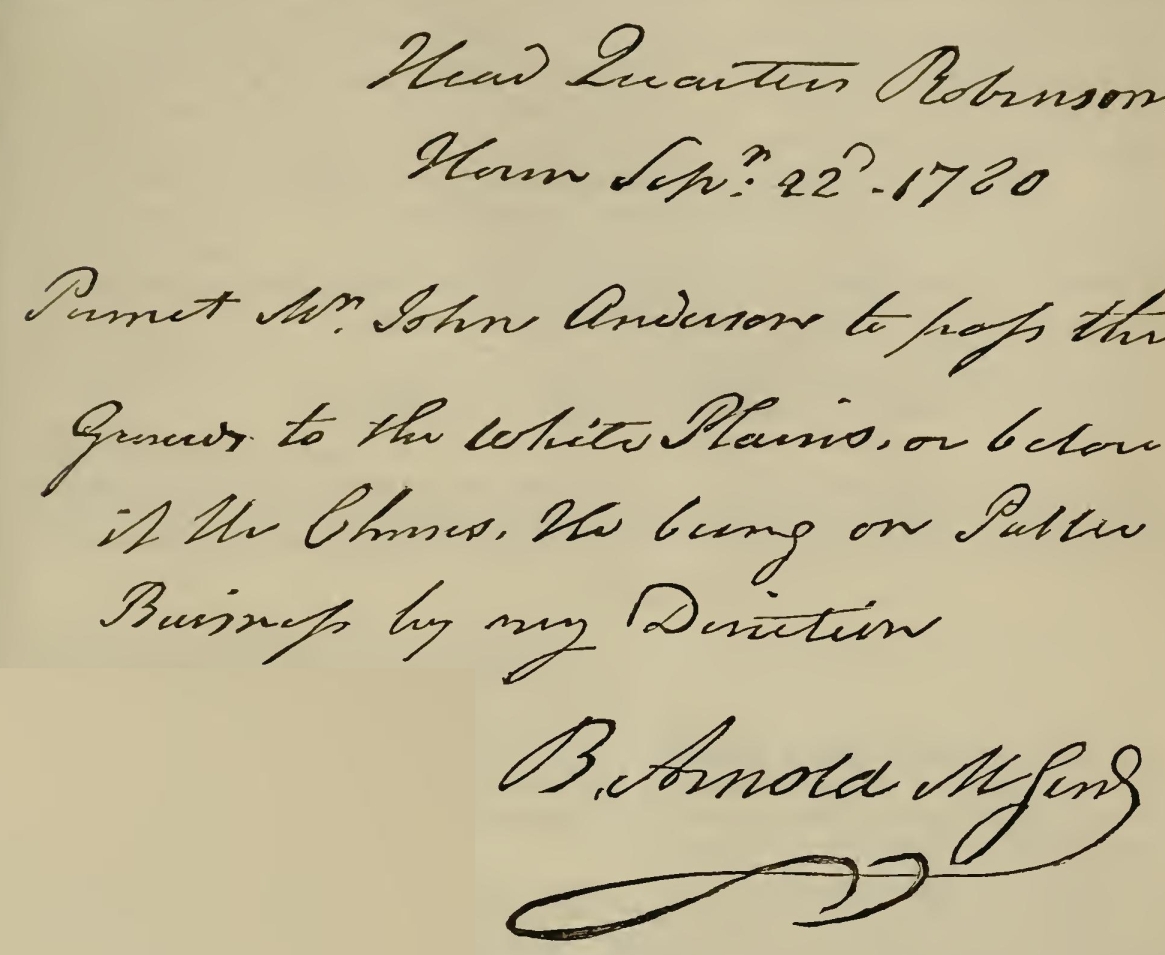 Head Quarters Robinson
House Sepr. 22d. 1780
Permit Mr. John Anderson to pass the
Guards to the White Plains, or below
if He Chuses. He being on Public
Business by my Direction
B. Arnold M Genl